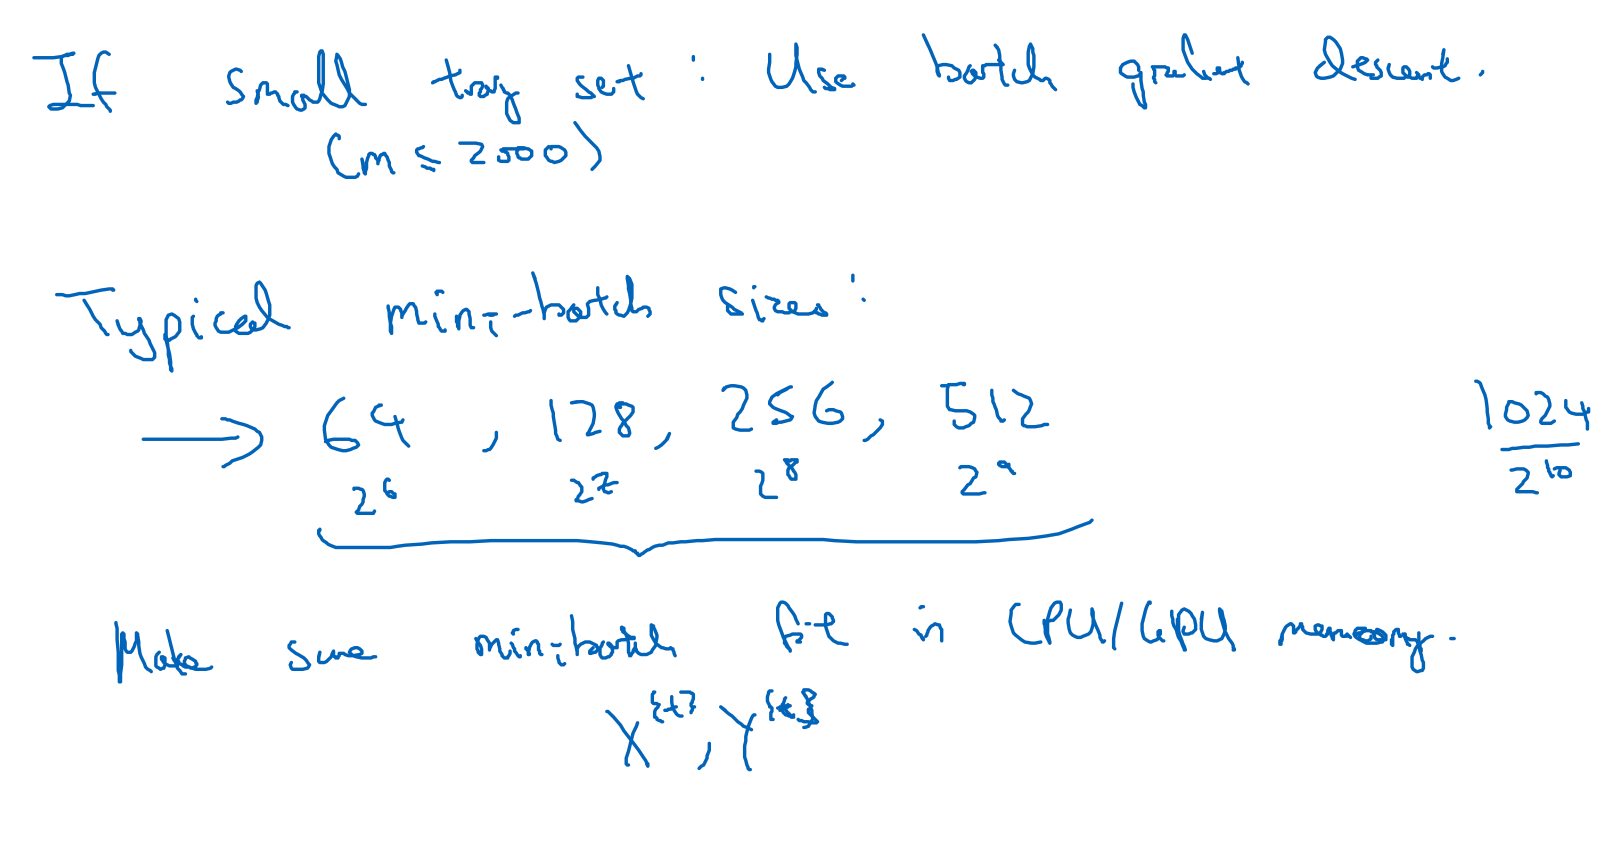 If small tray set : Use batch gradient descent.
(m ≤ 2000)
Typical mini-batch sizes :
→ 64 , 128 , 256 , 512 1024
2^6 2^7 2^8 2^9 2^10
Make sure mini-batch fit in CPU/GPU memory.
X^{t} , Y^{t}